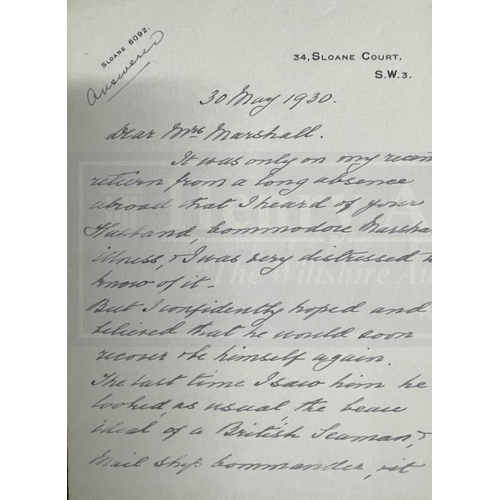 SLOANE 6092.
Answered
34, SLOANE COURT,
S.W.3.
30 May 1930.
Dear Mrs Marshall.
It was only on my recen
return from a long absence
abroad that I heard of your
Husband, Commodore Marshal
illness, & I was very distressed to
know of it.
But I confidently hoped and
believed that he would soon
recover & be himself again.
The last time I saw him he
looked, as usual, the beau
ideal of a British Seaman, &
Mail Ship Commander, & it
The Wiltshire Au